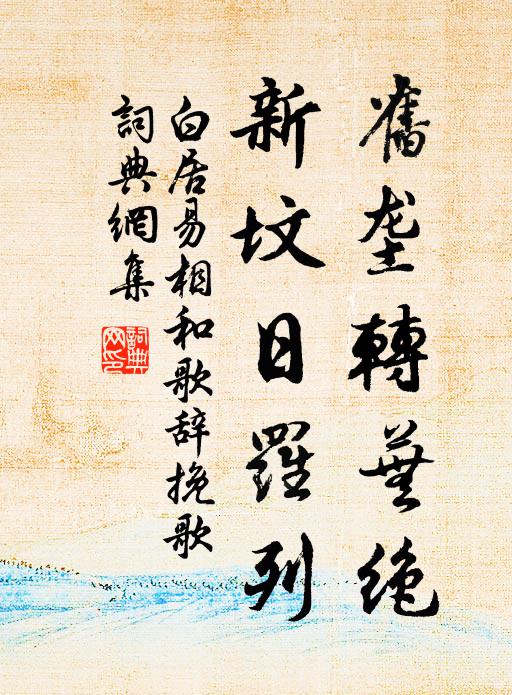 舊垄轉蕪絶
新坟日羅列
白居易相和歌辞挽歌
詞典網集
詞典網印